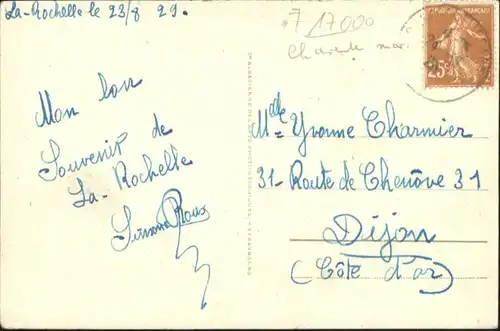 La-Rochelle le 23/8 29.
17000
Charente mar.
25c
Mon bon
Souvenir de
La-Rochelle
Simone Roux
Mlle Yvonne Charmier
31- Route de Chenôve 31
Dijon
(Côte d'or)